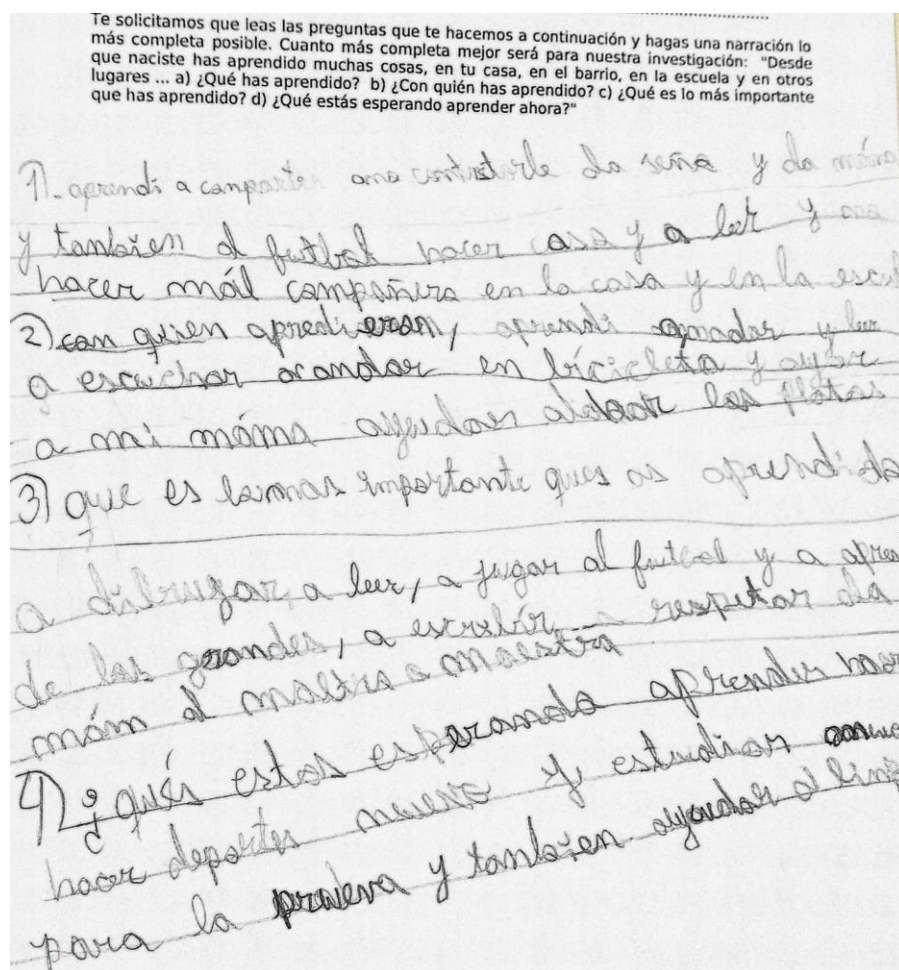 Te solicitamos que leas las preguntas que te hacemos a continuación y hagas una narración lo
más completa posible. Cuanto más completa mejor será para nuestra investigación: "Desde
que naciste has aprendido muchas cosas, en tu casa, en el barrio, en la escuela y en otros
lugares ... a) ¿Qué has aprendido? b) ¿Con quién has aprendido? c) ¿Qué es lo más importante
que has aprendido? d) ¿Qué estás esperando aprender ahora?"
1)-aprendi a compartir ono contestarle da seña y da mám
y tanbien al futbol hacer casa y a leer y ono
hacer mál compañera en la casa y en la escu
2) con quien apredieron, aprendi y leer
a escuchar arandar en bicicleta y
a mi máma ayudar los platos
3) que es lo mas importante ques as aprendido
a dibrugar, a leer, a jugar al futbol y a apre
de los grandes, a escrebir a respetar ala
mám al maestro o maestra
4) ¿qués estas esperando aprender
hacer deportes nuevo y estudiar
para la prueva y tanbien ayudar a linp